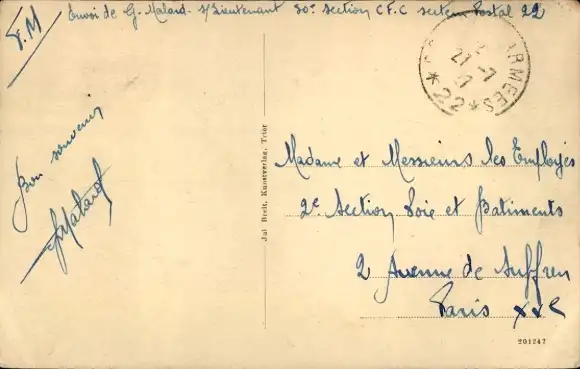 F.M
Envoi de G. Malard s/Lieutenant 30e Section C.F.C secteur Postal 22
ARMEES
21-7
* 22 *
Bon souvenir
GMalard
Jul Breit, Kunstverlag, Trier
Madame et Messieurs les Employés
2e Section Voie et Batiments
2 Avenue de Suffren
Paris XVe
201247